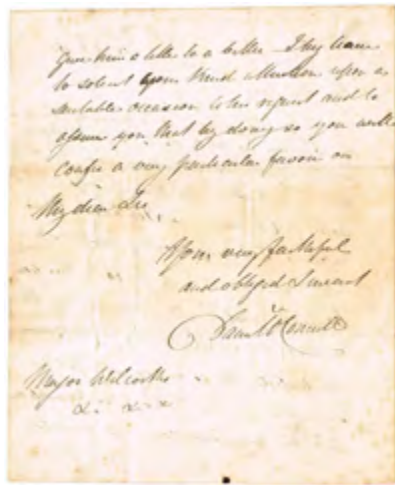 give him a letter to a letter I beg leave
to solicit your kind attention upon a
suitable occasion to his request and to
assure you that by doing so you will
confer a very particular favour on
My dear Sir
Your very faithful
and obliged Servant
Major